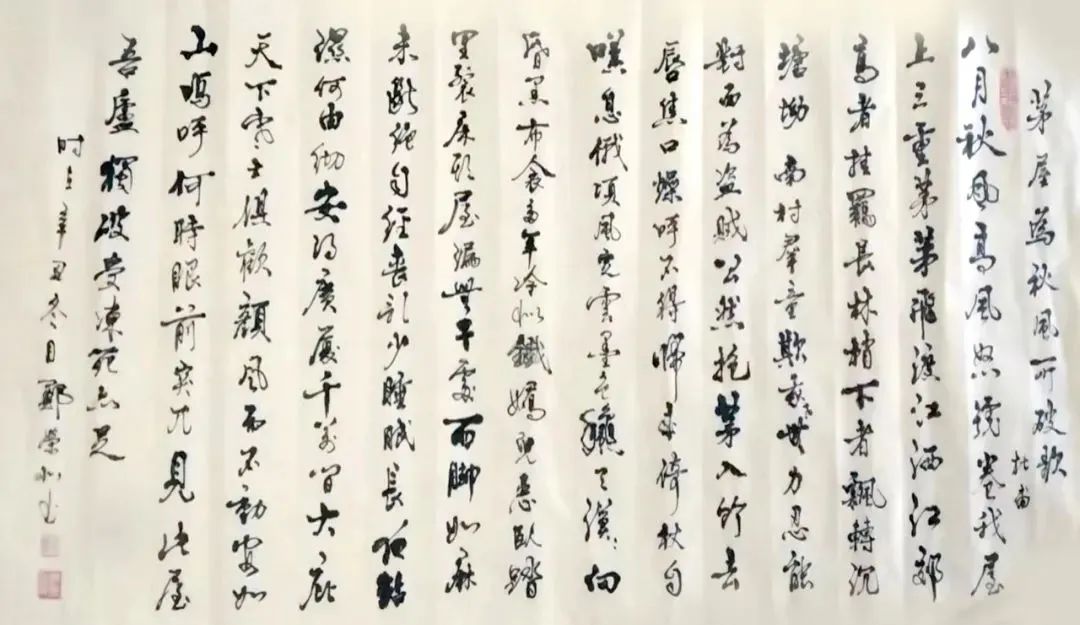 茅屋為秋風所破歌
杜甫
八月秋風高風怒號卷我屋
上三重茅茅飛渡江洒江郊
高者挂罥長林梢下者飄轉沉
塘坳南村群童欺我老無力忍能
對面為盗賊公然抱茅入竹去
唇焦口燥呼不得歸來倚杖自
嘆息俄頃風定雲墨色秋天漠漠向
昏黑布衾多年冷似鐵嬌兒惡臥踏
裏裂床頭屋漏無干處雨脚如麻
未斷絕自經喪亂少睡眠長夜霑
濕何由徹安得廣廈千萬間大庇
天下寒士俱歡顏風雨不動安如
山嗚呼何時眼前突兀見此屋
吾廬獨破受凍死亦足
时在辛丑冬月鄭榮